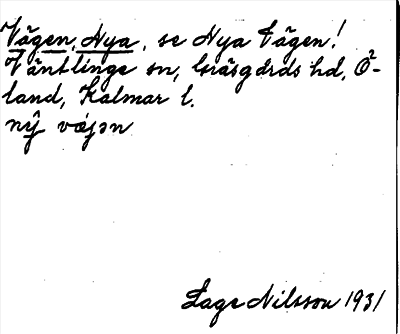 Vägen, Nya, se Nya Vägen!
Ventlinge sn, Gräsgårds hd, Ö-
land, Kalmar l.
nŷ vǽjən
Lage Nilsson 1931